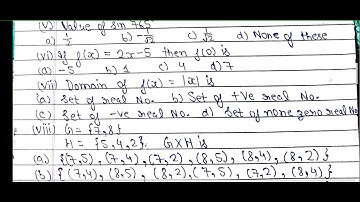 (v) Value of sin 765°
a) 1/2 b) -1/√2 c) 1/√2 d) None of these
(vi) If f(x) = 2x-5 then f(0) is
a) -5 b) 1 c) 4 d) 7
(vii) Domain of f(x) = |x| is
(a) Set of real No. b) Set of +Ve real No.
(c) Set of -ve real No. d) Set of none zero real No.
(viii) G = {7,8}
H = {5,4,2}, G×H is
(a) {(7,5), (7,4), (7,2), (8,5), (8,4), (8,2)}
(b) {(7,4), (8,5), (8,2), (7,5), (7,2), (8,4)}